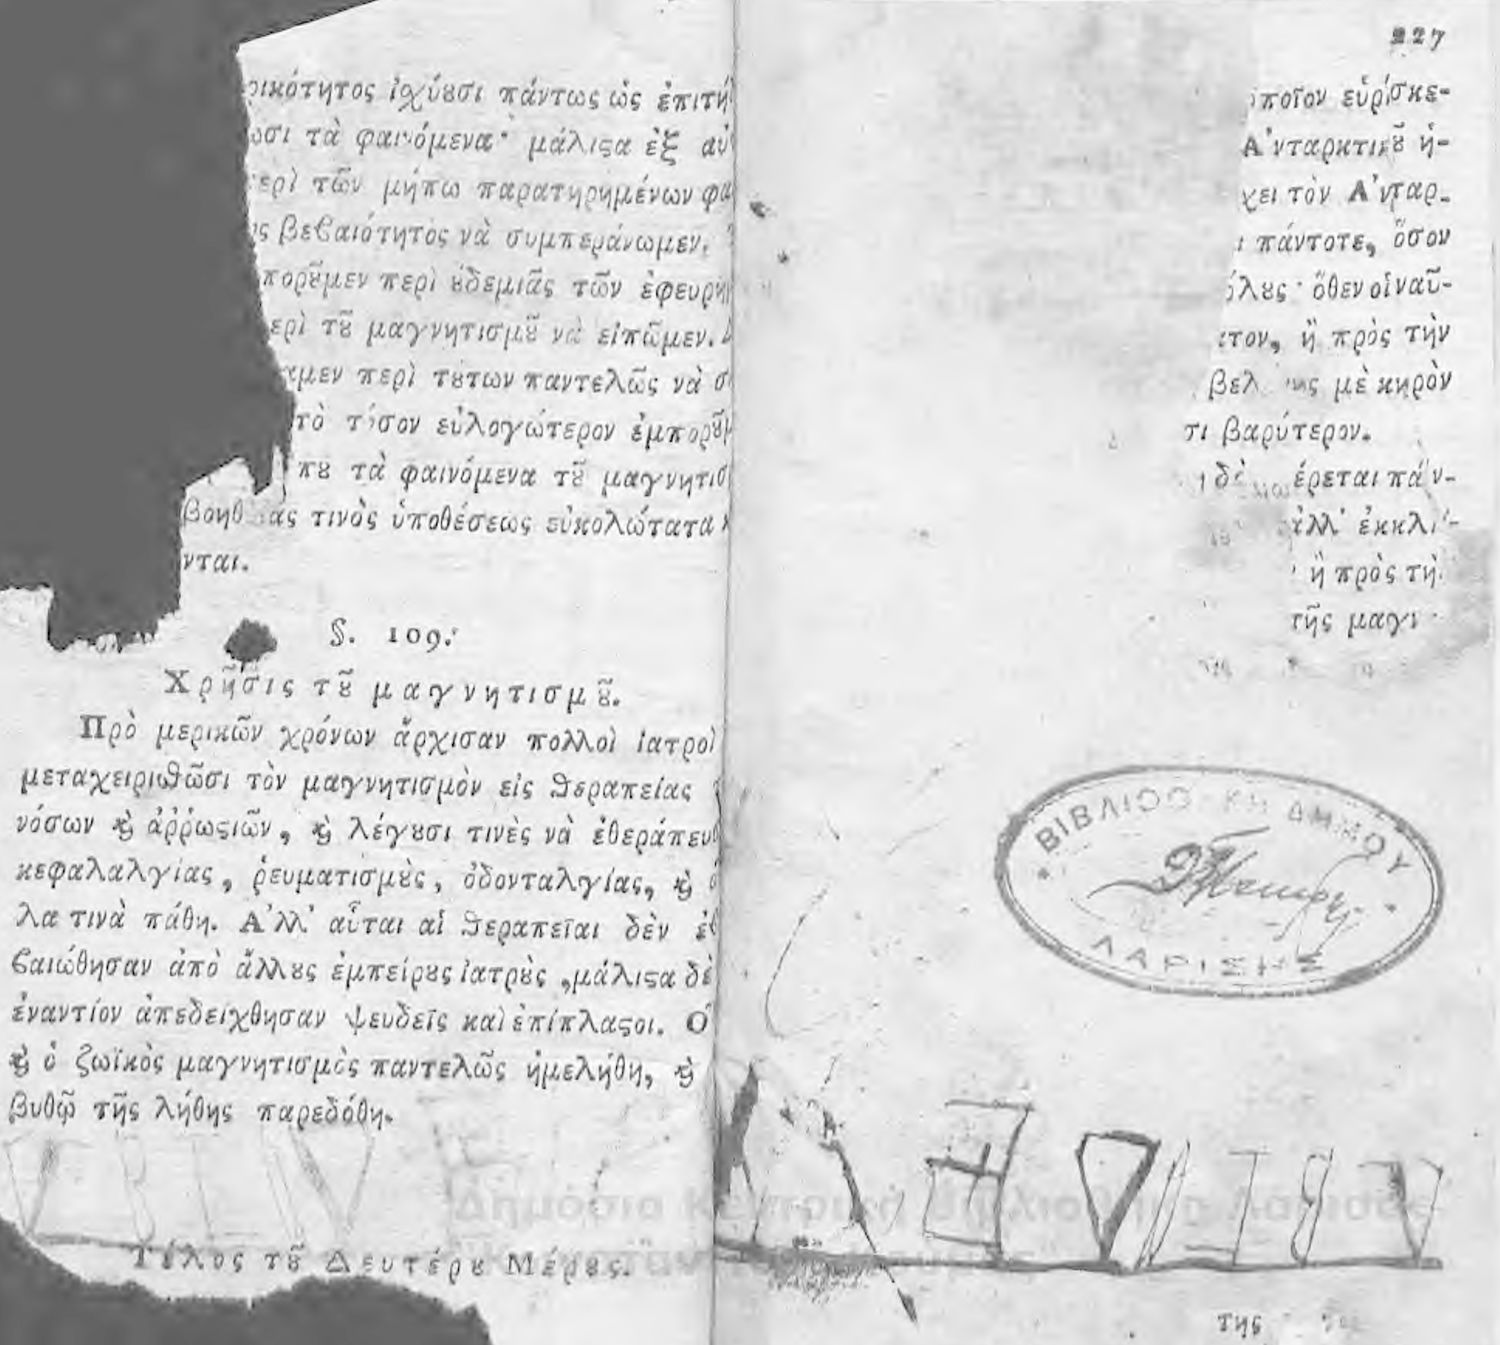 ρικότητος ἰχύȣσι πάντως ὡς ἐπιτή
ωσι τὰ φαινόμενα· μάλιςα ἐξ αὐ
ερὶ τῶν μήπω παρατηρημένων φα
ς βεβαιότητὸς νὰ συμπεράνωμεν.
πορȣ͂μεν περὶ ȣ̓δεμιᾶς τῶν ἐφευρη
ερὶ τȣ͂ μαγνητισμȣ͂ νὰ εἰπῶμεν.
αμεν περὶ τȣ́των παντελῶς νὰ σ
τὸ τόσον εὐλογώτερον ἐμπορȣ͂μ
πȣ τὰ φαινόμενα τȣ͂ μαγνητισ
βοηθ ας τινὸς ὑποθέσεως εὐκολώτατα
νται.
§. 109.
Χρῆσις τȣ͂ μαγνητισμȣ͂.
Πρὸ μερικῶν χρόνων ἄρχισαν πολλοὶ ἰατροὶ
μεταχειριϑῶσι τὸν μαγνητισμὸν εἰς ϑεραπείας
νόσων ϗ̀ ἀῤῥωςιῶν, ϗ̀ λέγȣσι τινὲς νὰ ἐθεράπευ
κεφαλαλγίας, ῥευματισμȣ̀ς, ὀδονταλγίας, ϗ̀
λα τινὰ πάθη. Ἀλλ' αὗται αἱ ϑεραπεῖαι δὲν ἐ
βαιώθησαν ἀπὸ ἄλλȣς ἐμπείρȣς ἰατρȣ̀ς, μάλιςα δὲ
ἐναντίον ἀπεδείχθησαν ψευδεῖς καὶ ἐπίπλαςοι. Ο
ϗ̀ ὁ ζωϊκὸς μαγνητισμὸς παντελῶς ἠμελήθη, ϗ̀
βυθῷ τῆς λήθης παρεδόθη.
Τέλος τȣ͂ Δευτέρȣ Μέρȣς.
227
ποῖον εὑρίσκε-
Ἀνταρκτικȣ͂ ἡ-
χει τὸν Ἀνταρ-
ι πάντοτε, ὅσον
όλȣς· ὅθεν οἱ ναῦ-
τον, ἢ πρὸς τὴν
βελ νης μὲ κηρὸν
τι βαρύτερον.
δὲ έρεται πάν-
ἀλλ' ἐκκλί-
ἢ πρὸς τὴ
τῆς μαγν
ΒΙΒΛΙΟΘ ΚΗ ΔΗΜΟΥ
ΛΑΡΙΣΗΣ
Δημόσια Κεντρική Βιβλιοθήκη Λάρισας
της